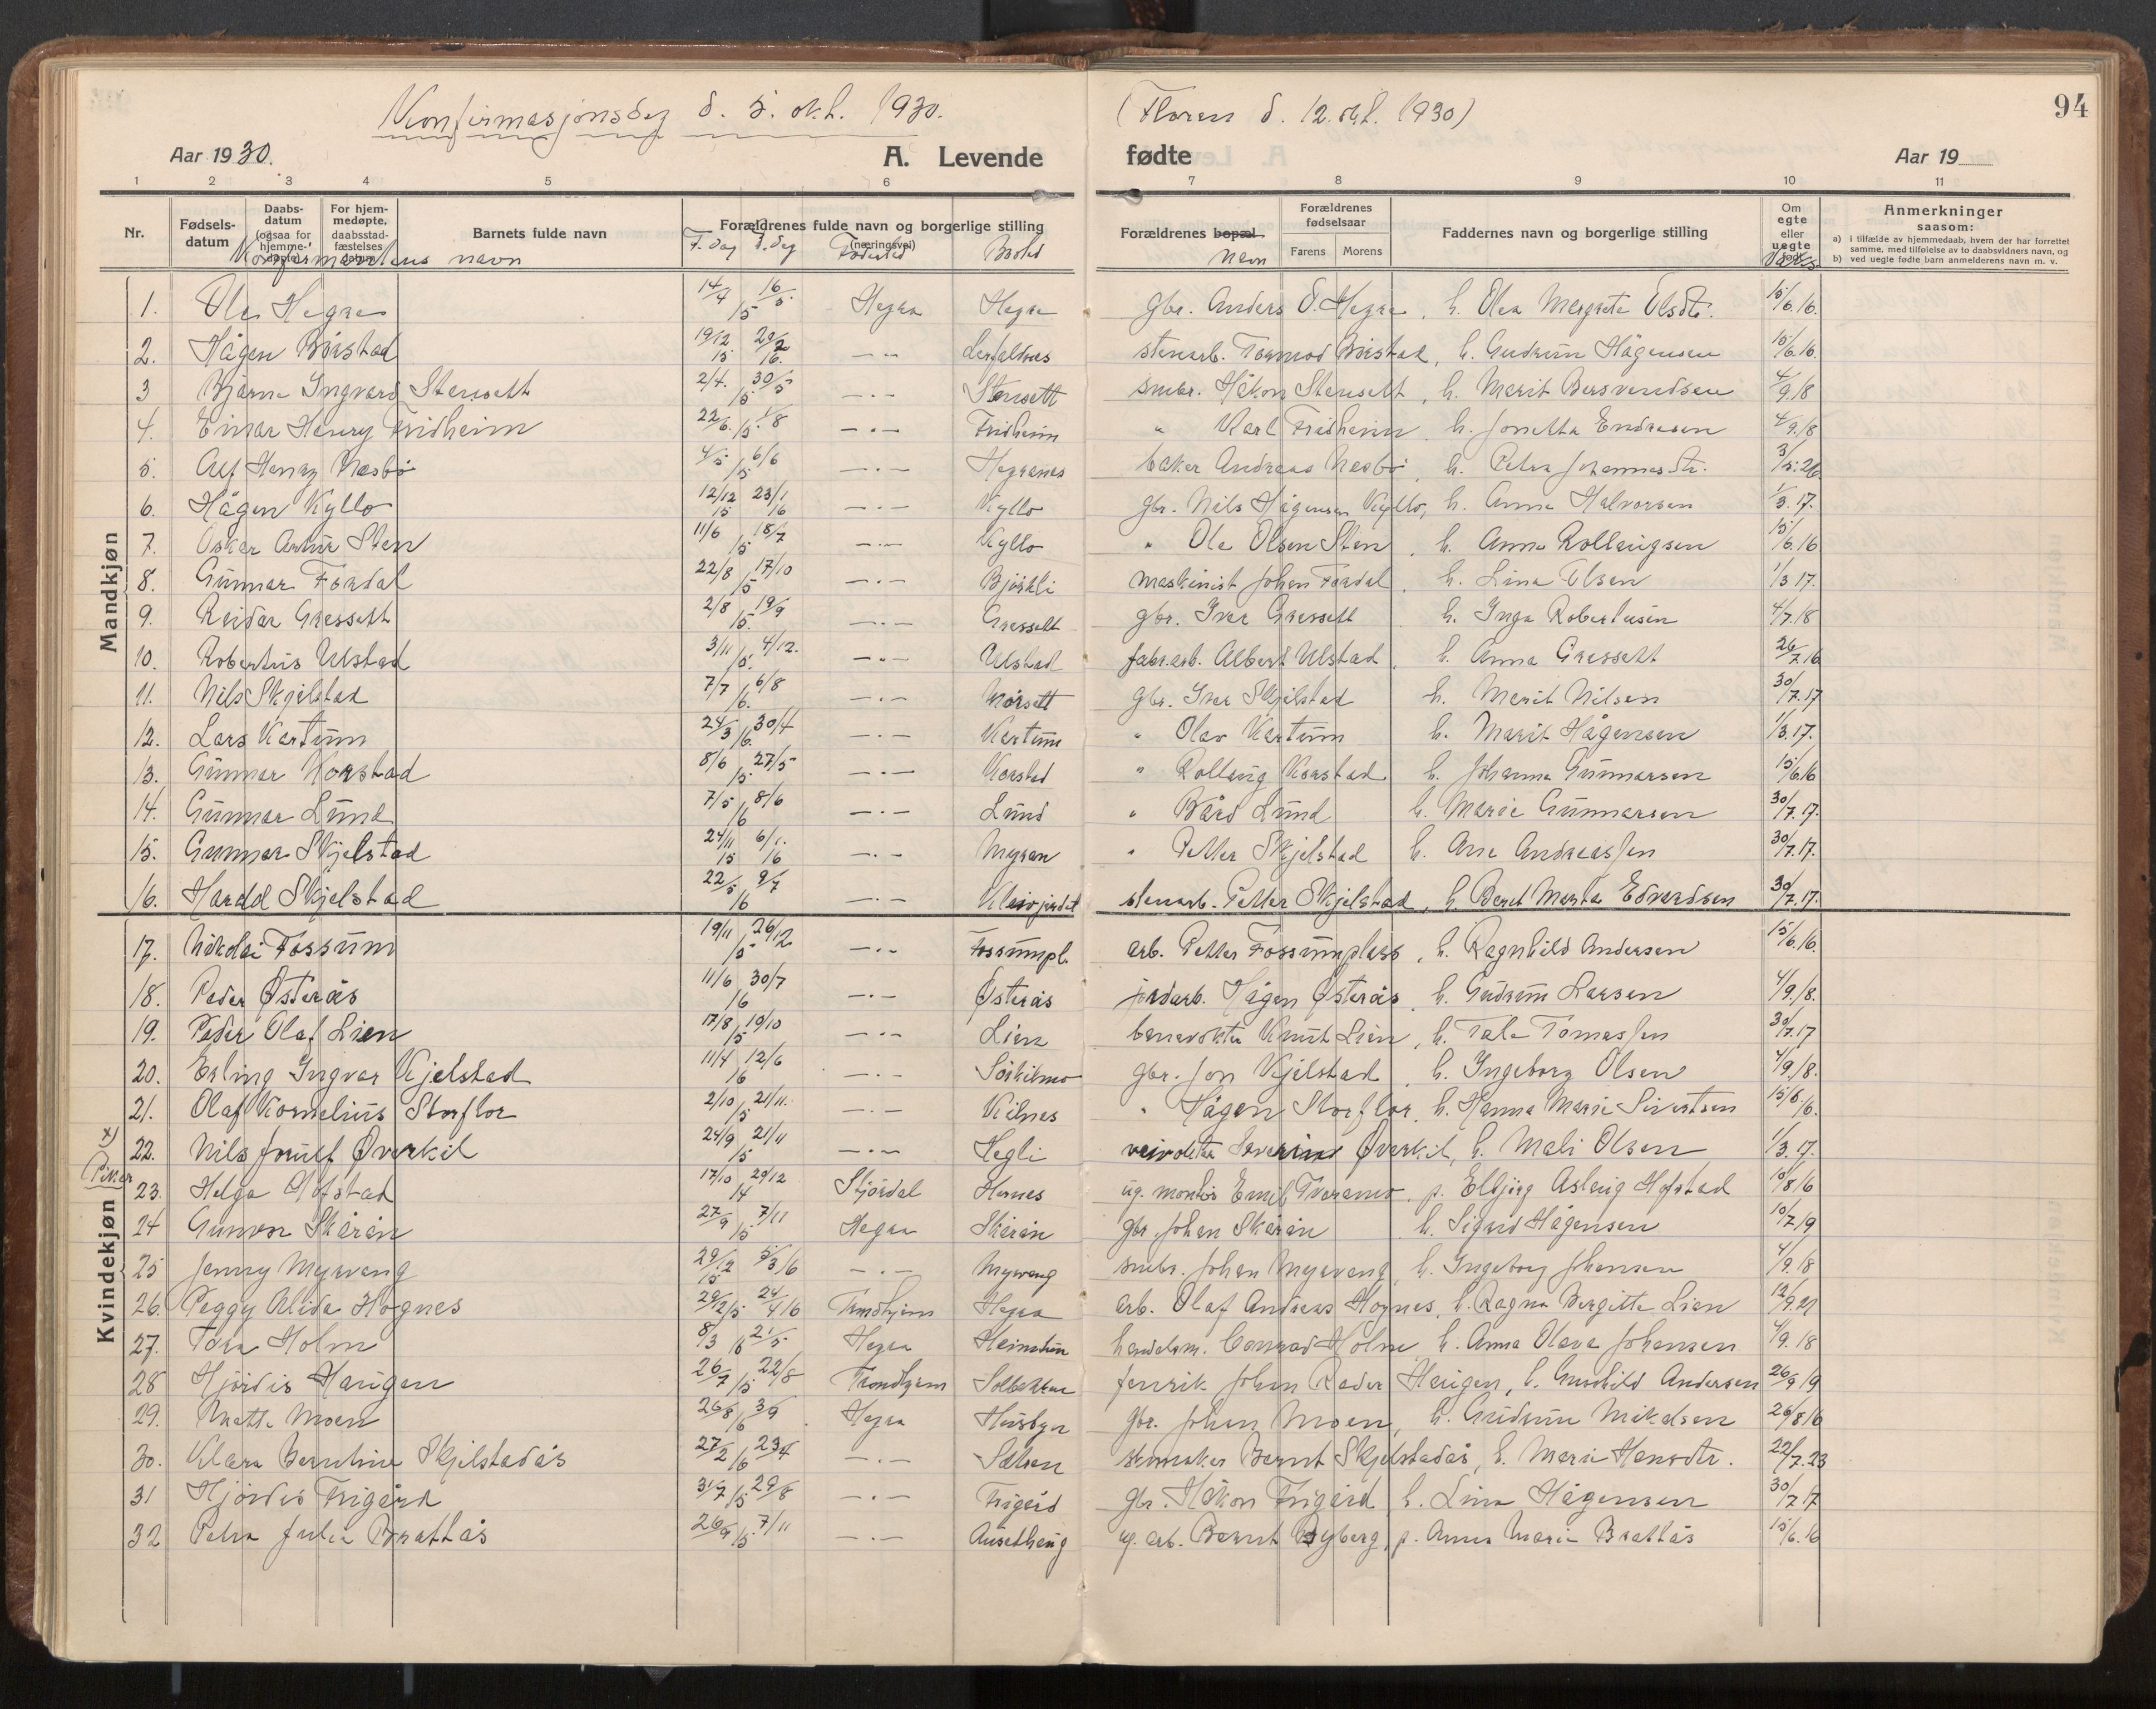 Konfirmasjonsdag d. 5. okt. 1930. (Floren d. 12. okt. 1930) 94
Aar 1930. A. Levende fødte Aar 19
1 2 3 4 5 6 7 8 9 10 11
Nr. Fødsels-datum Daabs-datum (ogsaa for hjemme-døpte) For hjem-medøpte, daabsstad-fæstelses datum Barnets fulde navn Forældrenes fulde navn og borgerlige stilling (næringsvei) Forældrenes bopæl Forældrenes fødselsaar Farens Morens Faddernes navn og borgerlige stilling Om egte eller uegte født Anmerkninger saasom: a) i tilfælde av hjemmedaab, hvem der har forrettet samme, med tilføielse av to daabsvidners navn, og b) ved uegte fødte barn anmelderens navn m. v.
Konfirmantens navn F. dag D. dag Fødested Bosted Navn Vaks.
Mandkjøn
1. Ola Hegre 14/4 16/5. 15 Hegra Hegre gbr. Anders O. Hegre, h. Olea Margrete Olsdtr. 15/6.16.
2. Hågen Börstad 19/12 15 20/2 16. — - Leofaldnes stenarb. Tormod Börstad, h. Gudrun Hågensen 15/6.16.
3 Bjarne Ingvard Stensett 2/4. 30/5 15 — - — Stensett smbr. Håkon Stensett, h. Marit Bersvendsen 4/9 18
4. Einar Henry Fridheim 22/6. 1/8 15 — - — Fridheim " Karl Fridheim h. Jonetta Endresen 4/9.18
5. Alf Henry Nesbö 4/5 6/6 15 — - — Hegranes baker Andreas Nesbö, h. Petra Johannesdtr. 3/5.26
6. Hågen Kyllo 12/12 15 23/1 16 — - — Kyllo gbr. Nils Hågensen Kyllo, h. Anna Halvorsen 1/3.17.
7. Oskar Artur Sten 11/6 18/7 15 — - — Kyllo " Ole Olsen Sten, h. Anna Rollaugsen 15/6.16
8. Gunnar Fordal 22/8 17/10 15 — - — Björkli maskinist Johan Fordal, h. Lina Olsen 1/3 17.
9. Reidar Gressett 2/8 19/9 15. — - — Gressett gbr. Iver Gressett h. Inga Robertusen 4/7.18
10. Robertus Ulstad 3/11 4/12. 15. — - — Ulstad fabr.arb. Albert Ulstad, h. Anna Gressett 26/7.16
11. Nils Skjelstad 7/7 6/8 16. — - — Mörsett gbr. Iver Skjelstad h. Marit Nilsen 30/7.17
12. Lars Kartum 24/3 30/4 16. — - — Kartum " Olav Kartum h. Marit Hågensen 1/3.17.
13. Gunnar Korstad 8/6 27/5 15 — - — Korstad " Rollaug Korstad h. Johanna Gunnarsen 15/6.16
14. Gunnar Lund 7/5 8/6 16 — - — Lund " Bård Lund h. Marie Gunnarsen 30/7.17.
15. Gunnar Skjelstad 24/11 15 6/1. 16 — - — Myran " Petter Skjelstad h. Ane Andreassen 30/7.17.
16. Harald Skjelstad 22/5 9/7 16 — - — Kleivjerdet stenarb. Petter Skjelstad, h. Beret Marta Edvardsen 30/7.17.
17. Nikolai Fossum 19/11 26/12 15 — - — Fossumpl. arb. Petter Fossumplass, h. Ragnhild Andersen 15/6.16.
18. Peder Østerås 11/6 30/7 16 — - — Østerås jordarb. Hågen Østerås, h. Gudrun Larsen 4/9.18.
19. Peder Olaf Lien 17/8 10/10 15 — - — Lien banevokter Knut Lien, h. Tale Tomassen 30/7.17
20. Erling Ingvar Kjelstad 11/4 12/6 16 — - — Sörkilmo gbr. Jon Kjelstad, h. Ingeborg Olsen 4/9.18.
21. Olaf Kornelius Storflor 2/10 21/11. 15 — - — Kilnes " Hågen Storflor, h. Hanna Marie Sivertsen 15/6 16.
x)
22. Nils Jomulf Øverkil 24/9 21/11 15 — - — Hegli veivokter Severin Øverkil, h. Mali Olsen 1/3.17.
Piker
Kvindekjøn
23. Helga Hofstad 17/10 29/12 14 Stjördal Hernes ug. montör Emil Tvaramo, p. Elbjörg Aslaug Hofstad 10/8 16
24 Gunvor Skårån 27/9 7/11 15 Hegra Skårån gbr. Johan Skårån h. Sigrid Hågensen 10/7.19
25 Jenny Myrvang 29/12 15 5/3 16 — - — Myrvang smbr. Johan Myrvang, h. Ingeborg Johansen 4/9.18
26. Peggy Alida Hognes 29/12 15 24/4 16 Trondhjem Hegra arb. Olaf Andreas Hognes, h. Ragna Bergitte Lien 12/9.21
27. Tora Holm 8/3 16 21/5 Hegra Heimtun handelsm. Conrad Holm h. Anna Olava Johansen 4/9.18
28 Hjördis Haugen 26/7 22/8 15 Trondhjem Solbakken fenrik Johan Peder Haugen, h. Gunhild Andersen 26/9 19
29. Mette Moen 26/8 3/9 16 Hegra Husbyn gbr. Johan Moen, h. Gudrun Mikalsen 26/8 16
30. Klara Berntine Skjelstadås 27/2 23/4 16 — - — Solsen skomaker Bernt Skjelstadås, h. Marie Hansdtr. 22/7.23
31 Hjördis Trigård 31/7 29/8 15 — - — Trigård gbr. Håkon Trigård h. Lina Hågensen 30/7 17
32 Petra Julie Brattås 26/9 7/11 15 — - — Ausethaug ug. arb. Bernt Byberg, p. Anna Marie Brattås 15/6.16